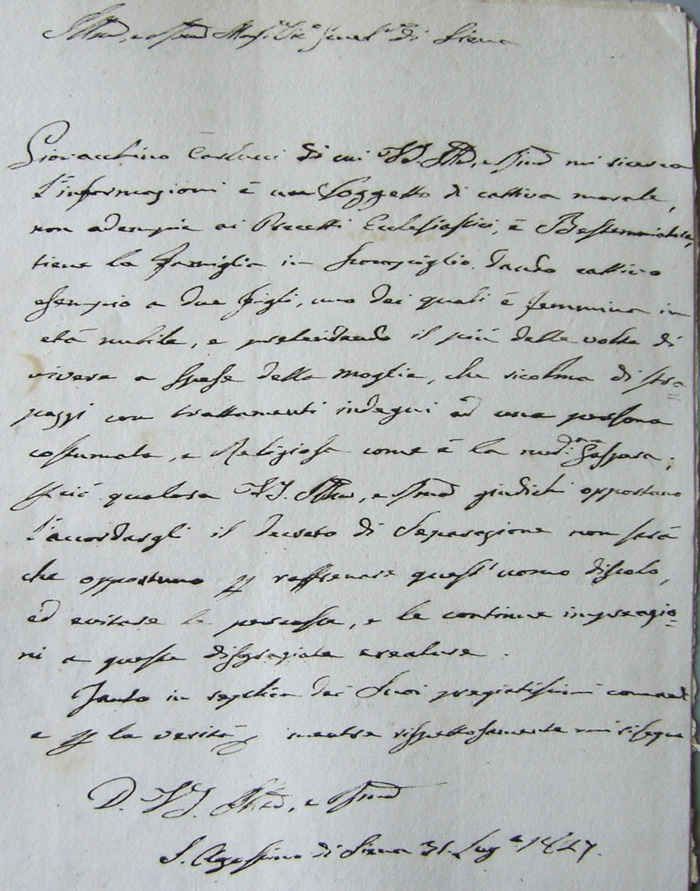 Illmo, e Rmo Monsr. Vico Genele di Siena
Gioacchino Carlucci di cui VS. Illma, e Rma mi ricerca
l'informazioni è un Soggetto di cattiva morale,
non adempie ai Precetti Ecclesiastici, è Bestemmiatore
tiene la Famiglia in scompiglio dando cattivo
esempio a due figli, uno dei quali è femmina in
età nubile, e pretendendo il più delle volte di
vivere a spese della Moglie, che ricolma di stra=
pazzi con trattamenti indegni ad una persona
costumata, e Religiosa come è la med: Gaspara;
più qualora VS. Illma, e Rma giudichi opportuno
l'accordargli il Decreto di Separazione non sarà
che opportuno p raffrenare quest'uomo discolo,
ed evitare le percosse, e le continue impreazio=
ni a queste disgraziate creature.
Tanto in replica dei Suoi pregiatissimi comandi
e p la verità, mentre rispettosamente mi
D. VS. Illma, e Rma
S. Agostino di Siena 31. Lug. 1827.